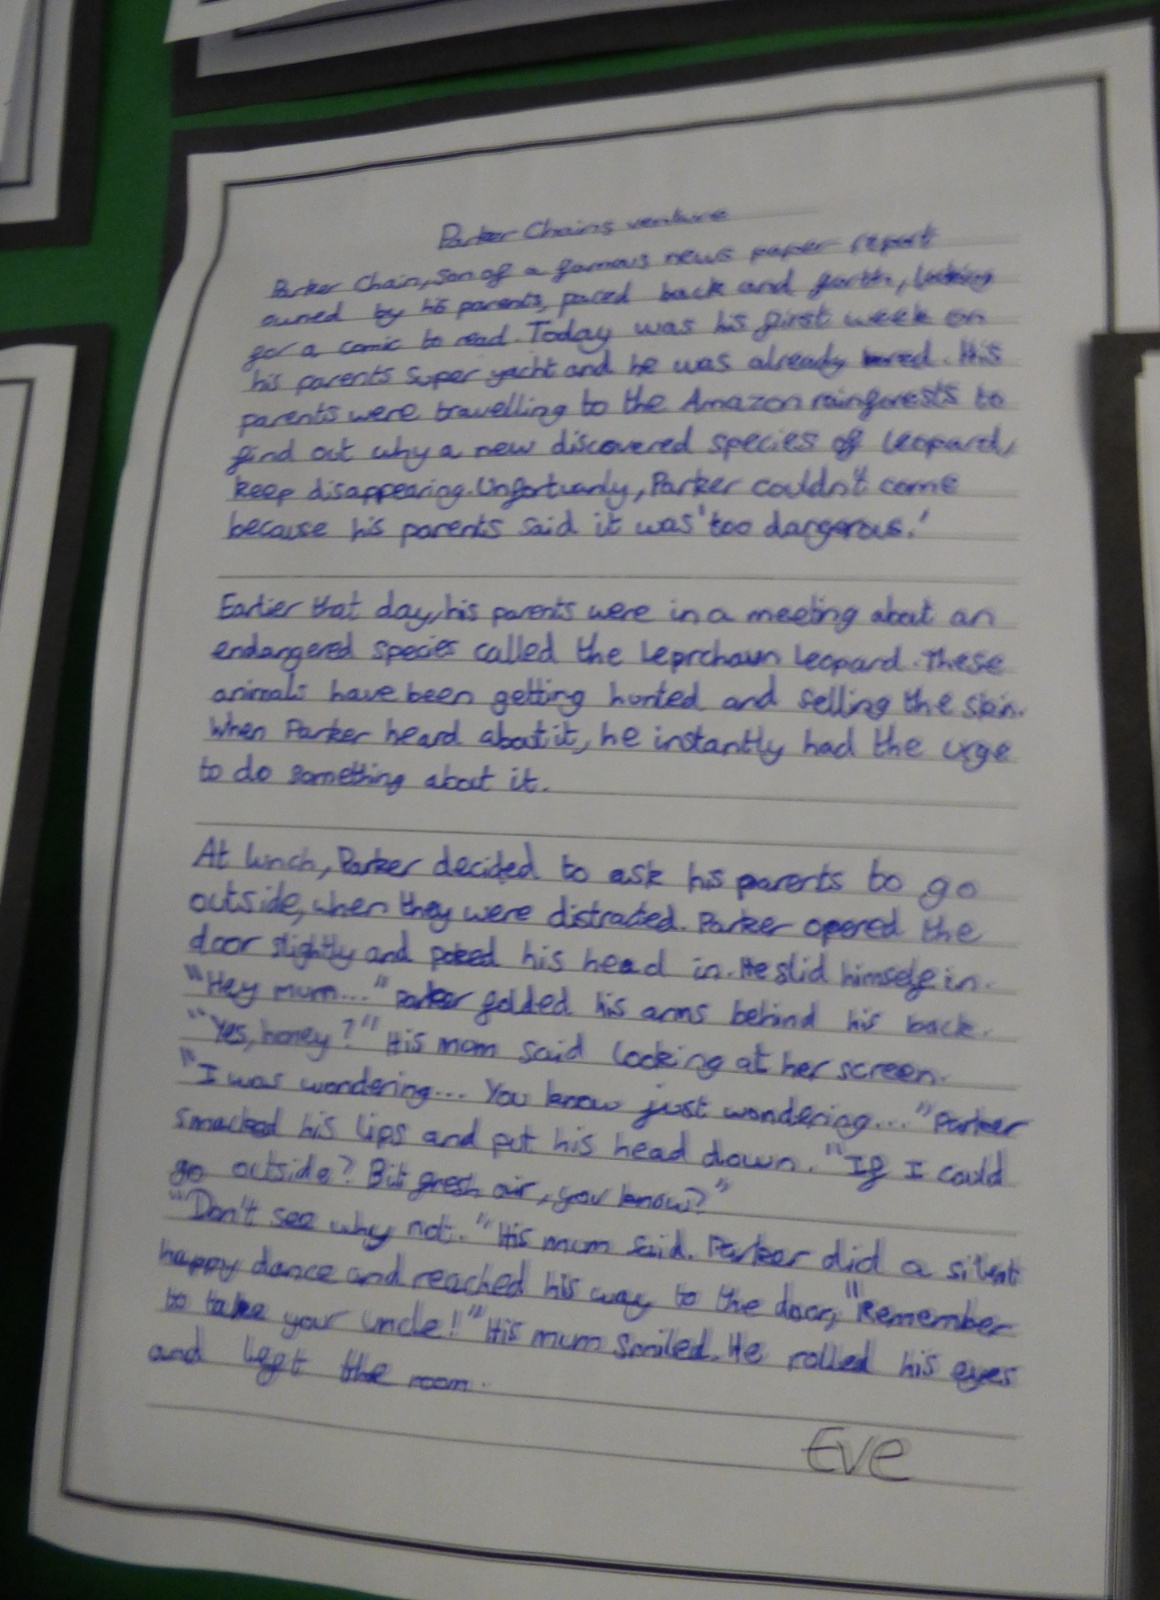 Parker Chains venture
Parker Chain, son of a famous news paper report
owned by his parents, paced back and forth, looking
for a comic to read. Today was his first week on
his parents super yacht and he was already bored. His
parents were travelling to the Amazon rainforests to
find out why a new discovered species of leopard,
keep disappearing. Unfortuanly, Parker couldn't come
because his parents said it was 'too dangerous.'
Earlier that day, his parents were in a meeting about an
endangered species called the Leprchaun Leopard. These
animals have been getting hunted and selling the skin.
When Parker heard about it, he instantly had the urge
to do something about it.
At lunch, Parker decided to ask his parents to go
outside, when they were distracted. Parker opened the
door slightly and poked his head in. He slid himself in.
"Hey mum..." Parker folded his arms behind his back.
"Yes, honey?" His mom said looking at her screen.
"I was wondering... You know just wondering..." Parker
smacked his lips and put his head down. "If I could
go outside? Bit fresh air, you know?"
"Don't see why not." His mum said. Parker did a silent
happy dance and reached his way to the door, "Remember
to take your uncle!" His mum smiled. He rolled his eyes
and left the room.
Eve